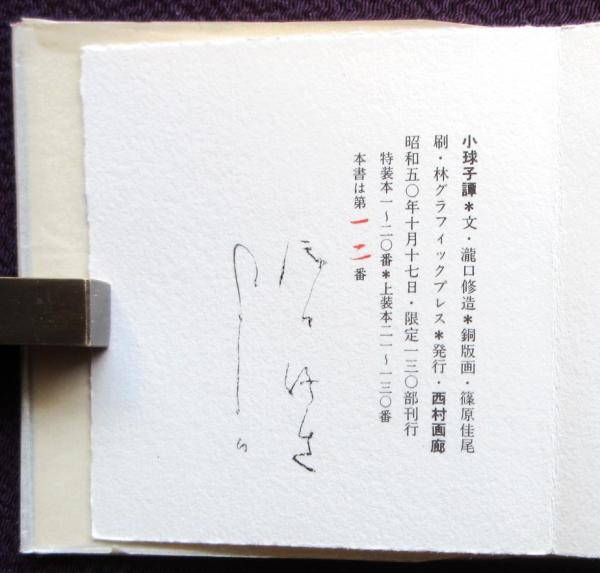 小球子譚＊文・瀧口修造＊銅版画・篠原佳尾
刷・林グラフィックプレス＊発行・西村画廊
昭和五〇年十月十七日・限定一三〇部刊行
特装本一～二〇番＊上装本二一～一三〇番
本書は第一二番